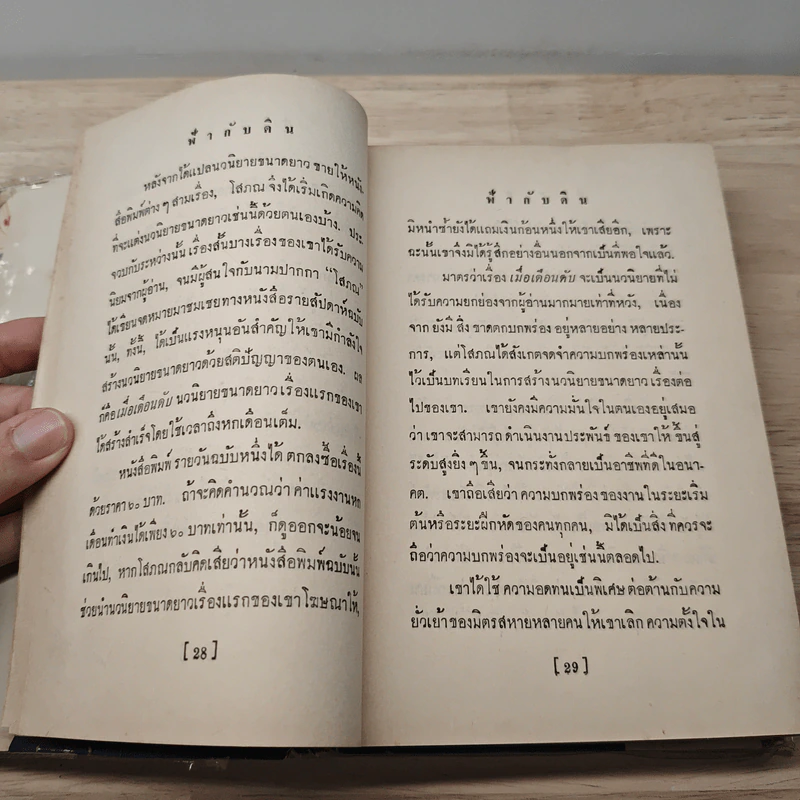 ฟ้ากับดิน
หลังจากได้แปลนวนิยายขนาดยาว ขายให้หนัง
สือพิมพ์ต่าง ๆ สามเรื่อง, โสภณ จึงได้เริ่มเกิดความคิด
ที่จะแต่งนวนิยายขนาดยาวเช่นนี้ด้วยตนเองบ้าง. ประ
จวบกับระหว่างนั้น เรื่องสั้นบางเรื่องของเขาได้รับความ
นิยมจากผู้อ่าน, จนมีผู้สนใจกับนามปากกา “โสภณ”
ได้เขียนจดหมายมาชมเชยทางหนังสือรายสัปดาห์ฉบับ
นั้น, ทั้งนี้, ได้เป็นแรงหนุนอันสำคัญให้เขามีกำลังใจ
สร้างนวนิยายขนาดยาวด้วยสติปัญญาของตนเอง. ผล
ก็คือเมื่อเดือนดับ นวนิยายขนาดยาวเรื่องแรกของเขา
ได้สร้างสำเร็จโดยใช้เวลาถึงหกเดือนเต็ม.
หนังสือพิมพ์รายวันฉบับหนึ่งได้ ตกลงซื้อเรื่องนี้
ด้วยราคา ๖๐ บาท. ถ้าจะคิดคำนวณว่า ค่าแรงงานหก
เดือนทำเงินได้เพียง ๖๐ บาทเท่านั้น, ก็ดูออกจะน้อยจน
เกินไป, หากโสภณกลับคิดเสียว่าหนังสือพิมพ์ฉบับนั้น
ช่วยนำนวนิยายขนาดยาวเรื่องแรกของเขาโฆษณาให้,
[ 28 ]
ฟ้ากับดิน
มิหนำซ้ำยังได้แถมเงินก้อนหนึ่งให้เขาเสียอีก, เพราะ
ฉะนั้นเขาจึงมิได้รู้สึกอย่างอื่นนอกจากเป็นที่พอใจแล้ว.
มาตรว่าเรื่อง เมื่อเดือนดับ จะเป็นนวนิยายที่ไม่
ได้รับความยกย่องจากผู้อ่านมากมายเท่าที่หวัง, เนื่อง
จาก ยังมี สิ่ง ขาดตกบกพร่อง อยู่หลายอย่าง หลายประ
การ, แต่โสภณได้สังเกตจดจำความบกพร่องเหล่านั้น
ไว้เป็นบทเรียนในการสร้างนวนิยายขนาดยาว เรื่องต่อ
ไปของเขา. เขายังคงมีความมั่นใจในตนเองอยู่เสมอ
ว่า เขาจะสามารถ ดำเนินงานประพันธ์ ของเขาให้ ขึ้นสู่
ระดับสูงยิ่ง ๆ ขึ้น, จนกระทั่งกลายเป็นอาชีพที่ดีในอนา–
คต. เขาถือเสียว่า ความบกพร่องของงานในระยะเริ่ม
ต้นหรือระยะฝึกหัดของคนทุกคน, มิได้เป็นสิ่งที่ควรจะ
ถือว่าความบกพร่องจะเป็นอยู่เช่นนี้ตลอดไป.
เขาได้ใช้ ความอดทนเป็นพิเศษ ต่อต้านกับความ
ยั่วเย้า ของมิตรสหายหลายคนให้เขาเลิก ความตั้งใจใน
[ 29 ]